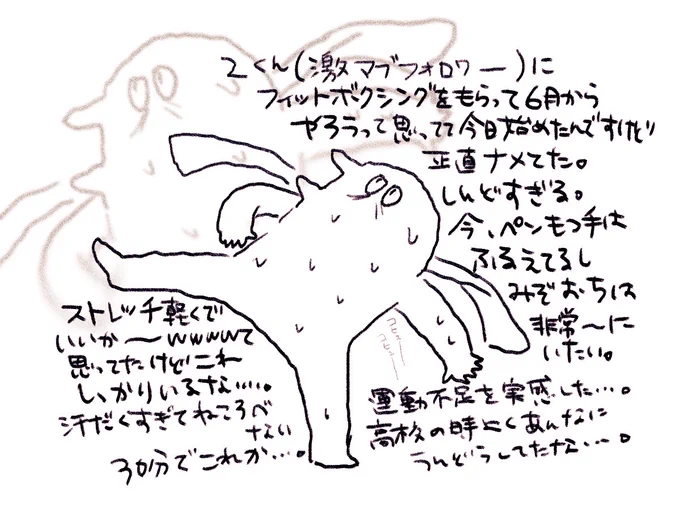 Zくん(激マブフォロワー)に
フィットボクシングをもらって6月から
やろうって思ってて今日始めたんですけど
正直ナメてた。
しんどすぎる。
今、ペンもつ手は
ふるえてるし
みぞおちは
非常〜に
いたい。
ストレッチ軽くで
いいか〜wwwwて
思ってたけどこれ
しっかりいるな……。
汗だくすぎてねころべ
ない
30分でこれか…。
コヒュー
コヒュー
運動不足を実感した…。
高校の時よくあんなに
うんどうしてたな…。